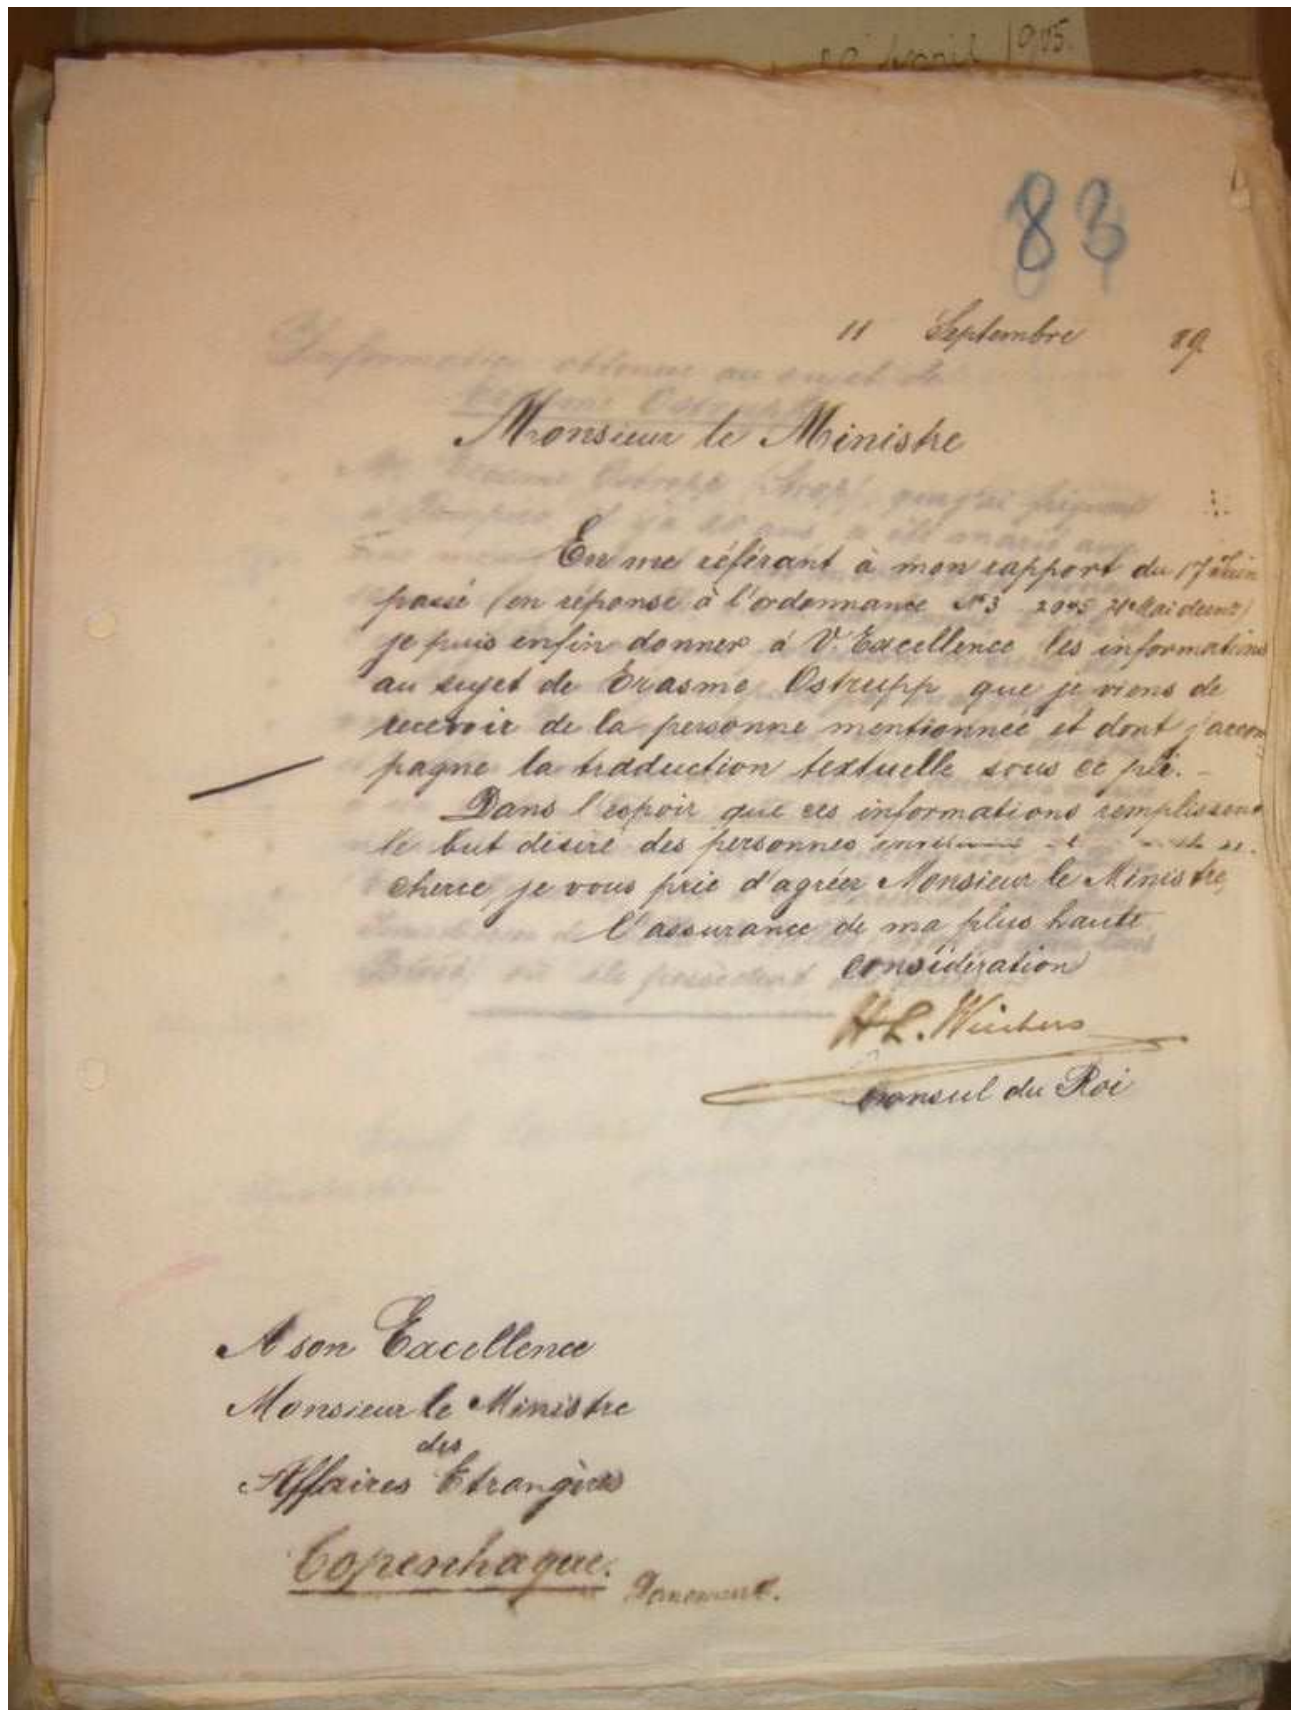 Avril 1905.
83
11 Septembre 89
Monsieur le Ministre
En me référant à mon rapport du 17 Juin
passé (en réponse à l'ordonnance N°3 2045 Mai
je puis enfin donner à V. Excellence les informations
au sujet de Erasme Ostrupp que je viens de
recevoir de la personne mentionnée et dont j'accom
pagne la traduction textuelle sous ce pli. -
Dans l'espoir que ces informations remplissent
le but désiré des personnes
cherce je vous prie d'agréer Monsieur le Ministre,
l'assurance de ma plus haute
considération
H L.
Consul du Roi
A son Excellence
Monsieur le Ministre
des
Affaires Etrangères
Copenhague.